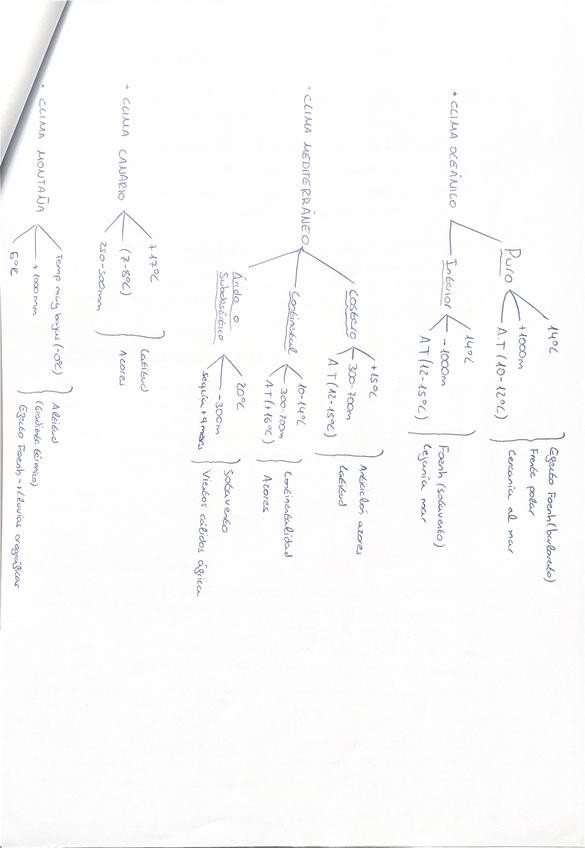 • CLIMA OCEÁNICO
Puro
14ºC
+1000m
A.T (10-12ºC)
Egecto Foenh (barlovento)
Frente polar
Cercanía al mar
Interior
14ºC
- 1000m
A T (12-15ºC)
Foenh (sotavento)
Lejanía mar
• CLIMA MEDITERRÁNEO
Costero
+15ºC
300-700m
A T (12-15ºC)
Anticiclón azores
Latitud
Continental
10-14ºC
300-700m
AT (+16ºC)
Continentalidad
Azores
Árido o
Subdesértico
20ºC
- 300m
Sequía +9 meses
Sotavento
Vientos cálidos ágrica
• CLIMA CANARIO
+17ºC
(7-8ºC)
250-500mm
Latitud
Azores
• CLIMA MONTAÑA
Temp muy bajas (-0ºC)
+ 1000mm
5ºC
Altitud
(Gradiente térmico)
Egecto Foenh → lluvias orográgicas